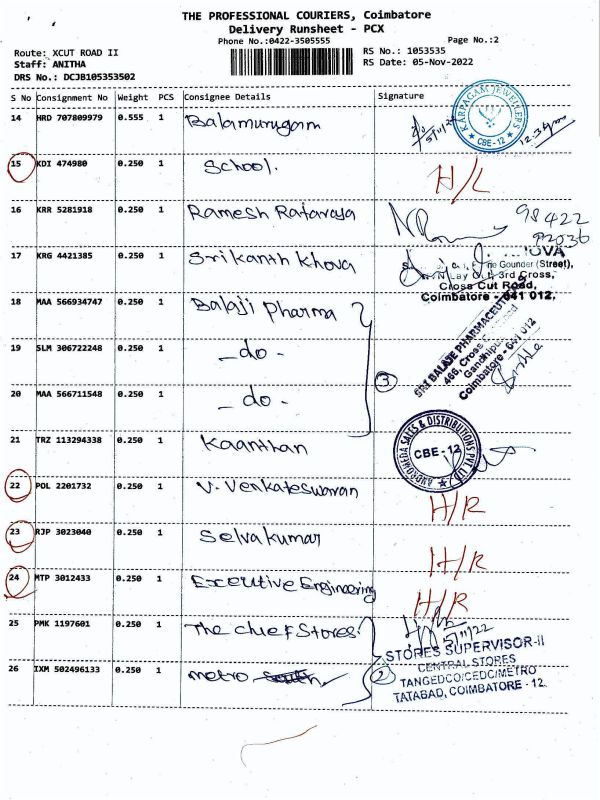 THE PROFESSIONAL COURIERS, Coimbatore
Delivery Runsheet - PCX
Phone No.:0422-3505555
Page No.:2
Route: XCUT ROAD II
RS No.: 1053535
Staff: ANITHA
RS Date: 05-Nov-2022
DRS No.: DCJB105353502
S No Consignment No Weight PCS Consignee Details Signature
14 HRD 707809979 0.555 1 Balamurugam
5/11/22
KARPAGAM JEWELLERS
CBE-12
12.34pm
15 KDI 474980 0.250 1 School. H/L
16 KRR 5281918 0.250 1 Ramesh Ratavaya
98422
92036
17 KRG 4421385 0.250 1 Srikanth Khova
Gounder (Street),
3rd Cross,
Cross Cut Road,
Coimbatore - 641 012.
18 MAA 566934747 0.250 1 Balaji Pharma
19 SLM 306722248 0.250 1 -do-
20 MAA 566711548 0.250 1 -do-
3
SRI BALAJE PHARMACEUTICALS
466, Cross
Coimbatore - 641 012
21 TRZ 113294338 0.250 1 Kaanthan
ANDROMEDA SALES & DISTRIBUTIONS PVT LTD
CBE-12
22 POL 2201732 0.250 1 V. Venkateswaran H/R
23 RJP 3023040 0.250 1 Selvakumar H/R
24 MTP 3012433 0.250 1 Executive Engineering H/R
25 PMK 1197601 0.250 1 The Chief Stores
5/11/22
26 IXM 502496133 0.250 1 metro South
2
STORES SUPERVISOR-II
CENTRAL STORES
TANGEDCO/CEDC/METRO
TATABAD, COIMBATORE - 12.